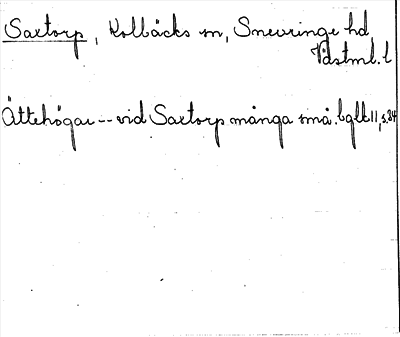 Saxtorp, Kolbäcks sn, Snevringe hd
Västml. l
Ättehögar -- vid Saxtorp många små.